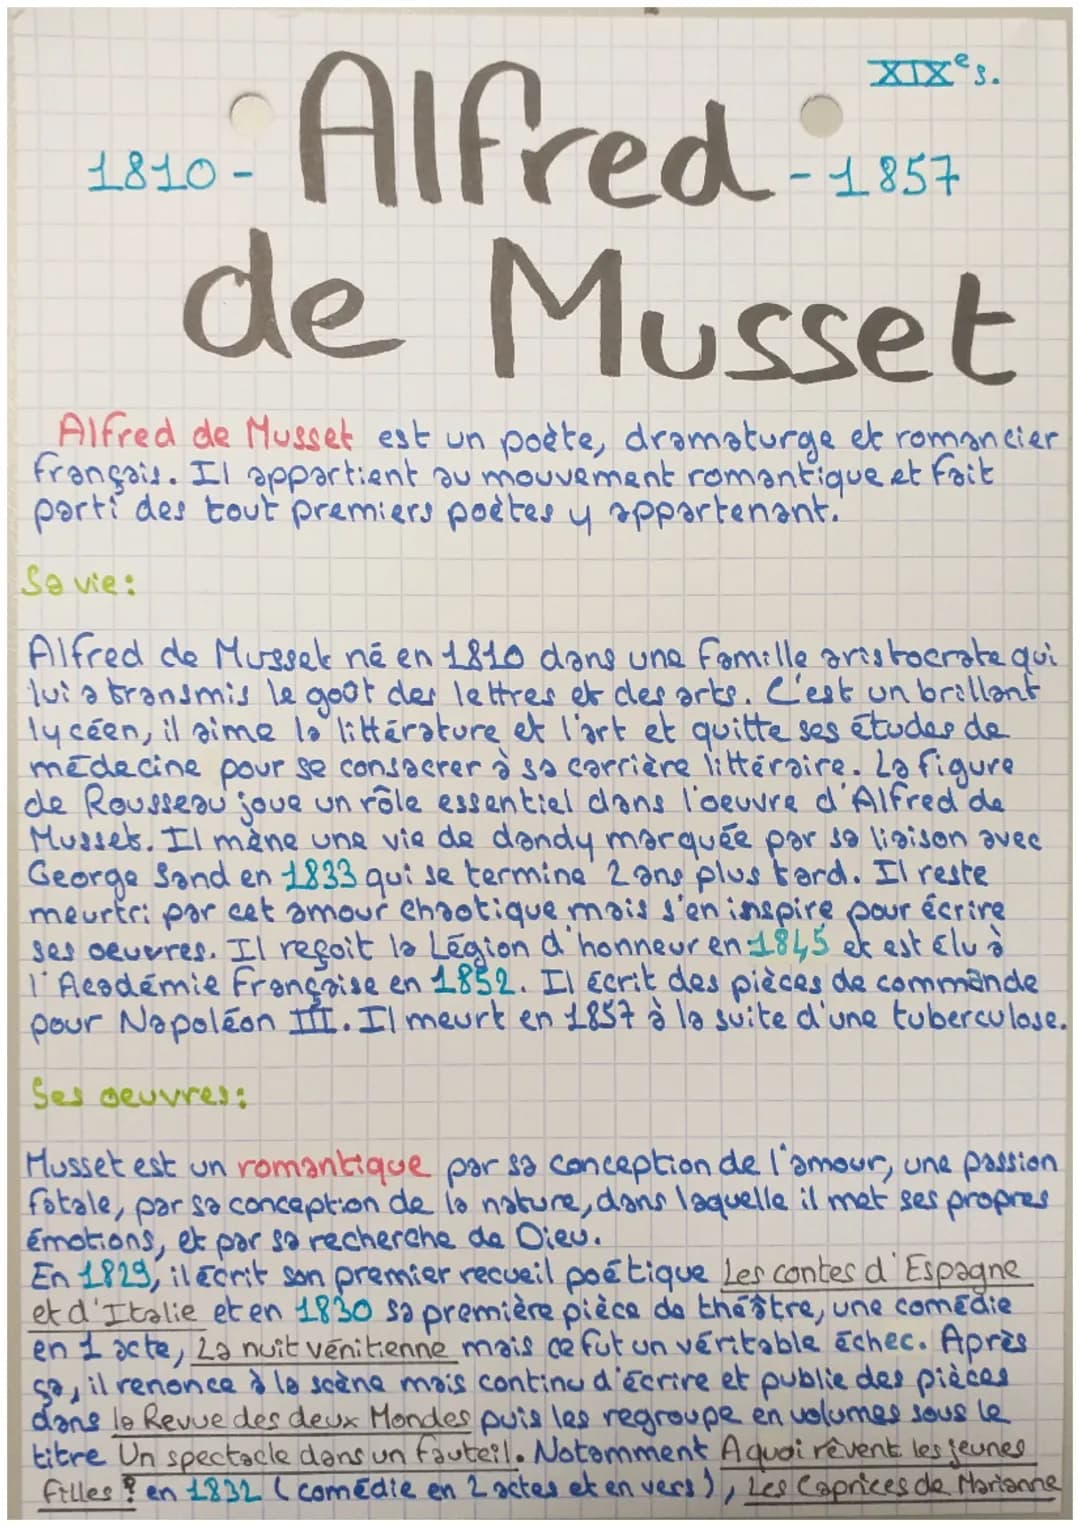 XIXe s.
1810 - Alfred - 1857
de Musset
Alfred de Musset est un poète, dramaturge et romancier
français. Il appartient au mouvement romantique et fait
parti des tout premiers poètes y appartenant.
Sa vie:
Alfred de Musset né en 1810 dans une famille aristocrate qui
lui a transmis le goût des lettres et des arts. C'est un brillant
lycéen, il aime la littérature et l'art et quitte ses études de
médecine pour se consacrer à sa carrière littéraire. La figure
de Rousseau joue un rôle essentiel dans l'oeuvre d'Alfred de
Musset. Il mène une vie de dandy marquée par sa liaison avec
George Sand en 1833 qui se termine 2 ans plus tard. Il reste
meurtri par cet amour chaotique mais s'en inspire pour écrire
ses oeuvres. Il reçoit la Légion d'honneur en 1845 et est élu à
l'Académie Française en 1852. Il écrit des pièces de commande
pour Napoléon III. Il meurt en 1857 à la suite d'une tuberculose.
Ses oeuvres:
Musset est un romantique par sa conception de l'amour, une passion
fatale, par sa conception de la nature, dans laquelle il met ses propres
émotions, et par sa recherche de Dieu.
En 1829, il écrit son premier recueil poétique Les contes d'Espagne
et d'Italie et en 1830 sa première pièce de théâtre, une comédie
en 1 acte, La nuit vénitienne mais ce fut un véritable échec. Après
ça, il renonce à la scène mais continu d'écrire et publie des pièces
dans la Revue des deux Mondes puis les regroupe en volumes sous le
titre Un spectacle dans un fauteil. Notamment A quoi rêvent les jeunes
filles ? en 1832 (comédie en 2 actes et en vers), Les Caprices de Marianne